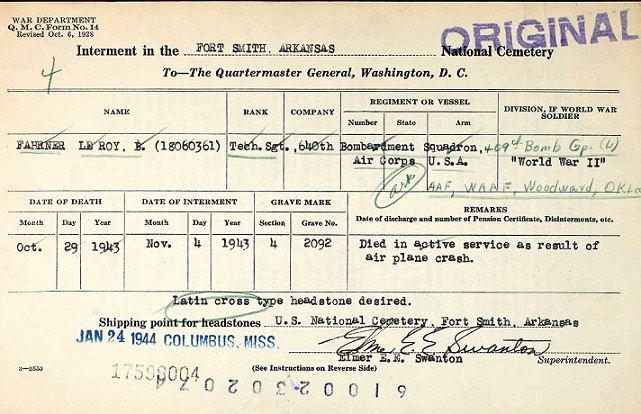 WAR DEPARTMENT
Q. M. C. Form No. 14
Revised Oct. 6, 1928
ORIGINAL
Interment in the FORT SMITH, ARKANSAS National Cemetery
4
To—The Quartermaster General, Washington, D. C.
NAME RANK COMPANY REGIMENT OR VESSEL DIVISION, IF WORLD WAR SOLDIER
Number State Arm
FAHRNER LE ROY, E. (18060361) Tech.Sgt. ,640th Bombardment Squadron, 409th Bomb Gp. (L)
Air Corps U.S.A. "World War II"
Ark AAF, WAAF, Woodward, Okla
DATE OF DEATH DATE OF INTERMENT GRAVE MARK REMARKS
Month Day Year Month Day Year Section Grave No. Date of discharge and number of Pension Certificate, Disinterments, etc.
Oct. 29 1943 Nov. 4 1943 4 2092 Died in active service as result of
air plane crash.
Latin cross type headstone desired.
Shipping point for headstones U.S. National Cemetery, Fort Smith, Arkansas
JAN 24 1944 COLUMBUS, MISS.
Elmer E. E. Swanton
Elmer E.E. Swanton Superintendent.
3—2550 17598004 (See Instructions on Reverse Side)